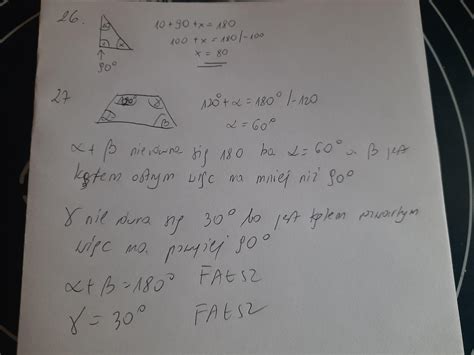 26.
10 + 90 + x = 180
100 + x = 180 /-100
x = 80
90°
27
120° + α = 180° /-120
α = 60°
α + β nierówna się 180 bo α = 60° a β jest
kątem ostrym więc ma mniej niż 90°
γ nie równa się 30° bo jest kątem rozwartym
więc ma powyżej 90°
α + β = 180° FAŁSZ
γ = 30° FAŁSZ